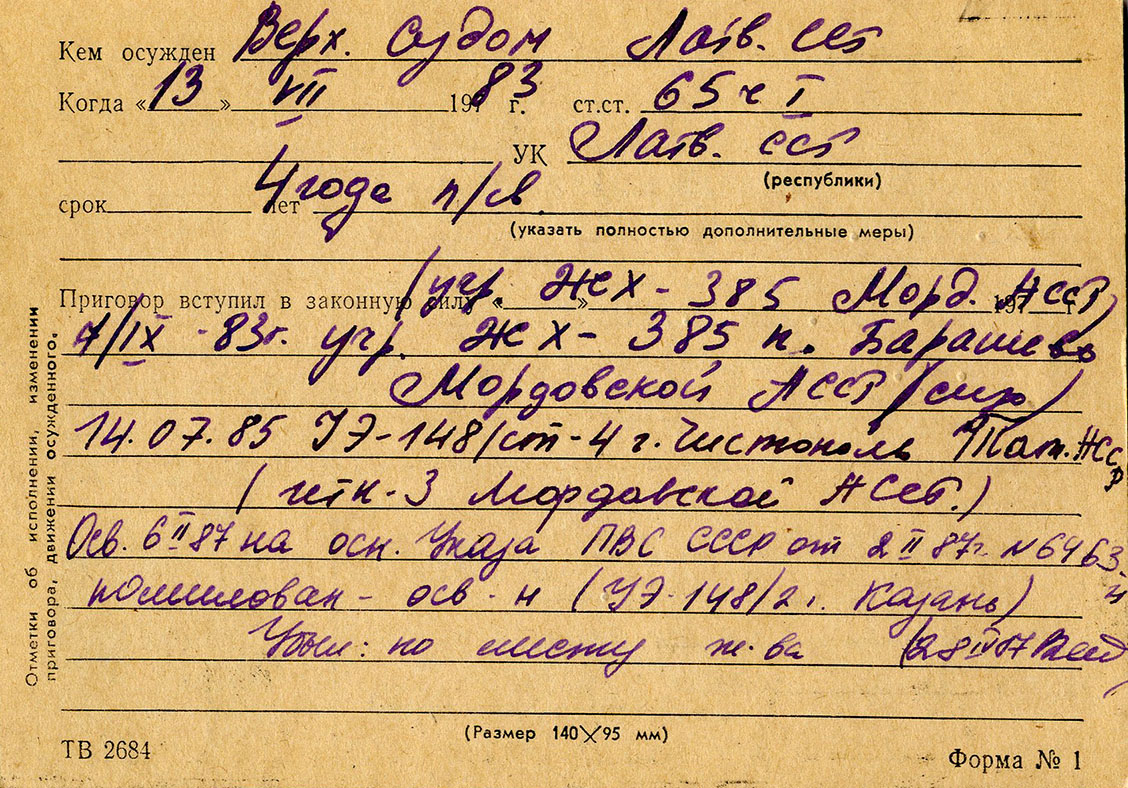 Кем осужден Верх. Судом Латв. ССР
Когда «13» VII 1983 г. ст.ст. 65 ч I
УК Латв. ССР
(республики)
срок 4 года лет п/св
(указать полностью дополнительные меры)
Приговор вступил в законную силу « » 197 г
(учр ЖХ-385 Морд. АССР)
7/IX -83г. учр. ЖХ-385 п. Барашево
Мордовской АССР
14.07.85 УЭ-148/ст-4 г. Чистополь Тат. АССР
(ИТК-3 Мордовской АССР.)
Осв. 6 II 87 на осн. Указа ПВС СССР от 2 II 87г. N6463-
помилован - осв-н (УЭ-148/2 г. Казань)
Убыл: по месту ж-ва
Отметки об исполнении, изменении
приговора, движении осужденного.
(Размер 140×95 мм)
ТВ 2684
Форма № 1